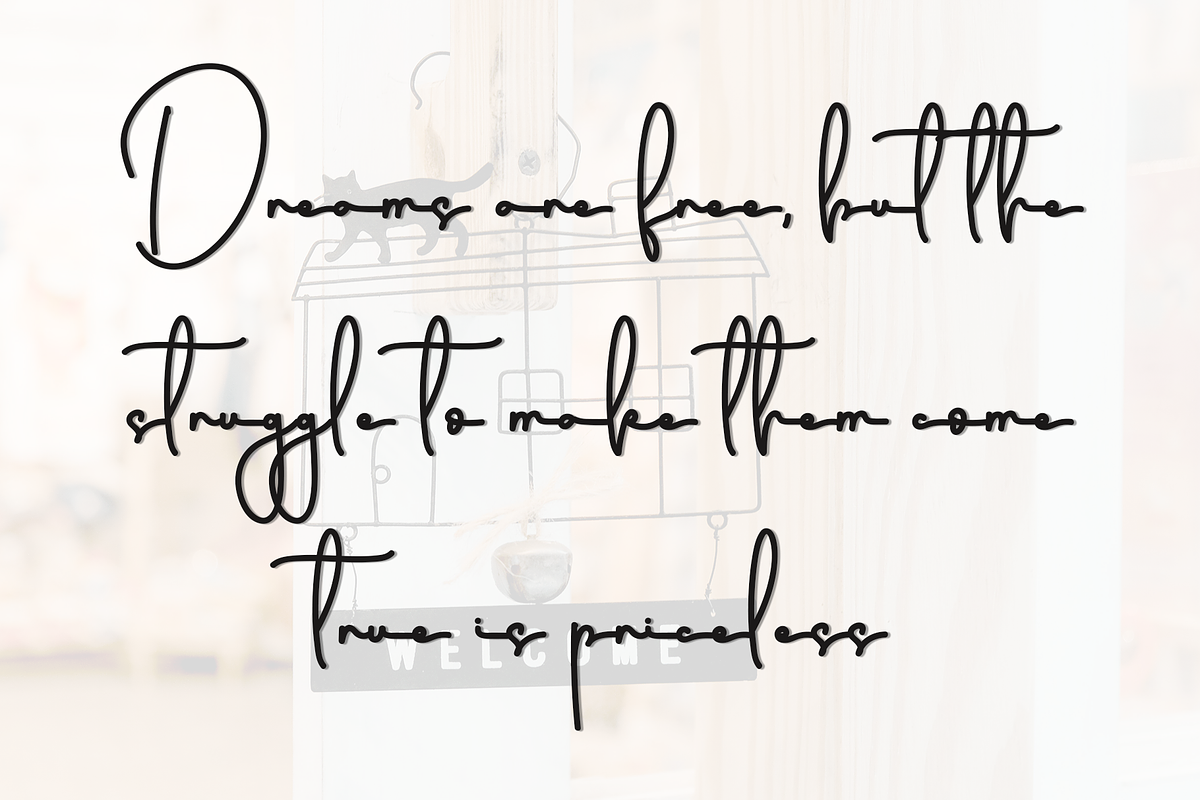 Dreams are free, but the
struggle to make them come
true is priceless
WELCOME